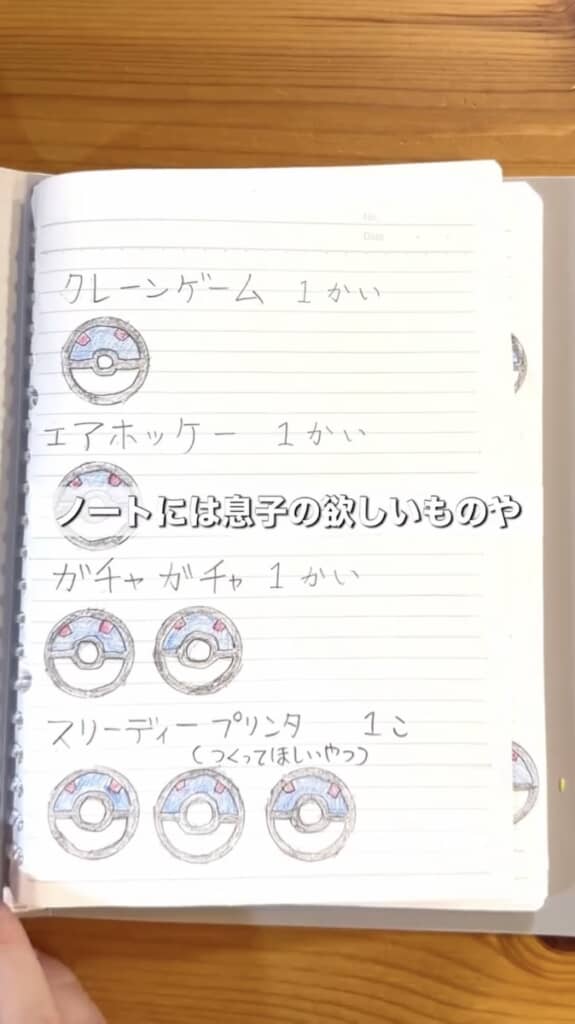 No.
Date
クレーンゲーム 1かい
エアホッケー 1かい
ノートには息子の欲しいものや
ガチャガチャ 1かい
スリーディープリンタ 1こ
(つくってほしいやつ)